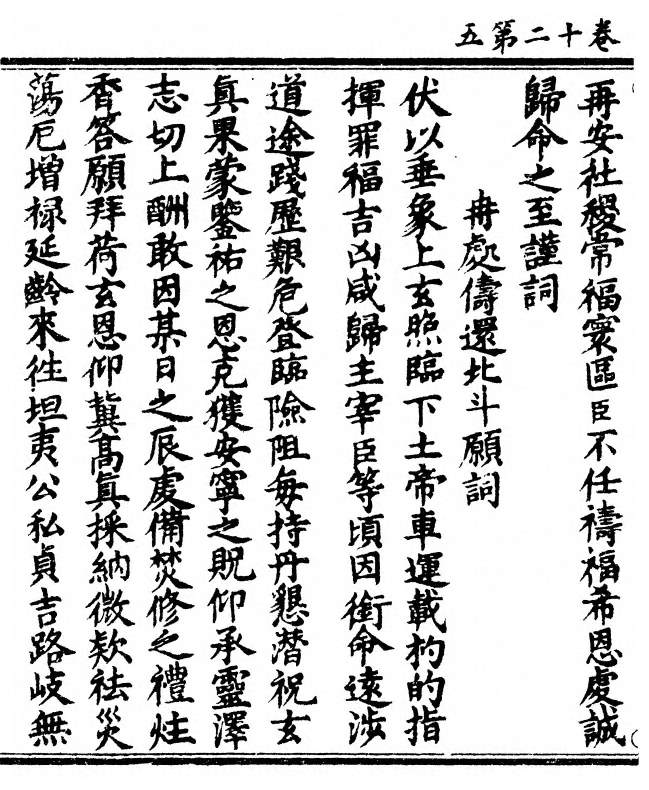 卷十二第五
再安社稷常福寰區臣不任禱福希恩虔誠
歸命之至謹詞
冉處儔還北斗願詞
伏以垂象上玄照臨下土帝車運載杓的指
揮罪福吉凶咸歸主宰臣等頃因銜命遠涉
道途踐歷艱危登臨險阻每持丹懇潛祝玄
真果蒙鑒祐之恩克獲安寧之貺仰承靈澤
志切上酬敢因某日之辰虔備焚修之禮炷
香答願拜荷玄恩仰冀高真採納微欵祛災
蕩厄增祿延齡來往坦夷公私貞吉路岐無